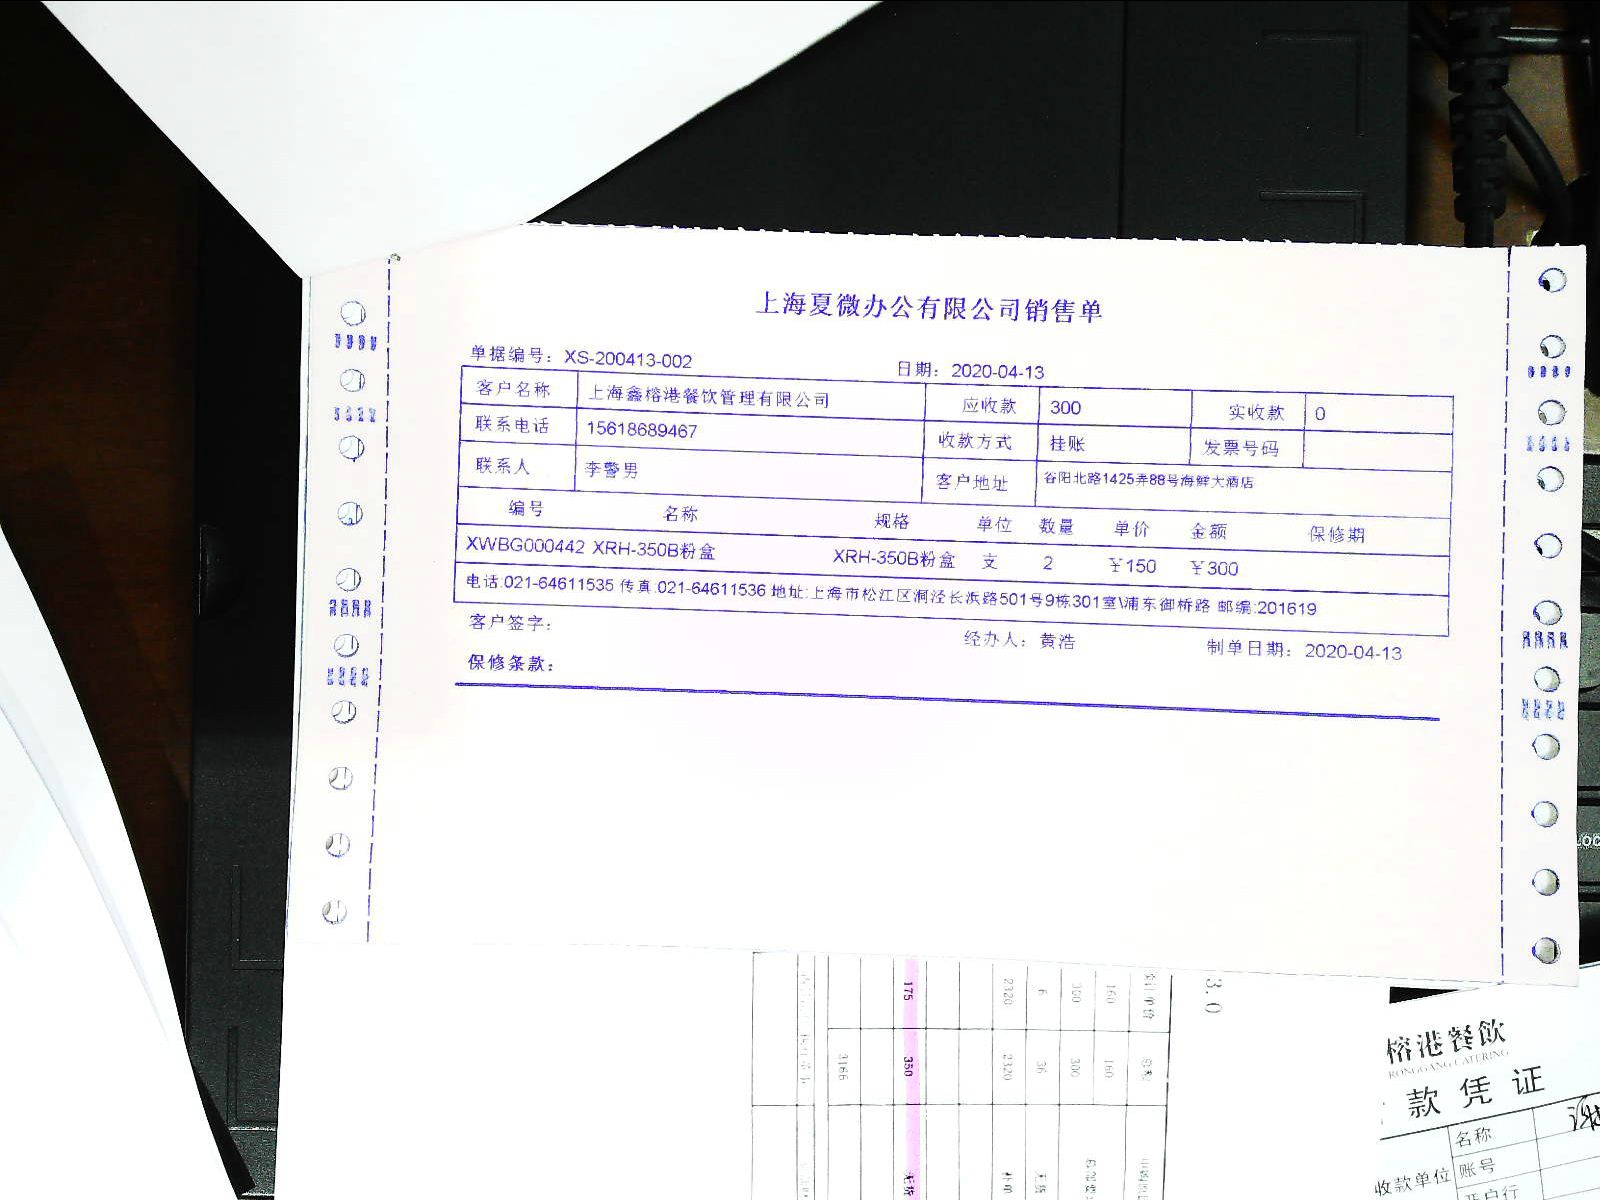 上海夏微办公有限公司销售单
单据编号：XS-200413-002 日期：2020-04-13
客户名称 上海鑫榕港餐饮管理有限公司 应收款 300 实收款 0
联系电话 15618689467 收款方式 挂账 发票号码
联系人 李警男 客户地址 谷阳北路1425弄88号海鲜大酒店
编号 名称 规格 单位 数量 单价 金额 保修期
XWBG000442 XRH-350B粉盒 XRH-350B粉盒 支 2 ￥150 ￥300
电话:021-64611535 传真:021-64611536 地址:上海市松江区洞泾长浜路501号9栋301室\浦东御桥路 邮编:201619
客户签字： 经办人：黄浩 制单日期：2020-04-13
保修条款：
3.0
160 300 6 2320 175
160 300 36 2320 350 3166
榕港餐饮
RONGGANG CATERING
款凭证
名称
收款单位 账号
开户行